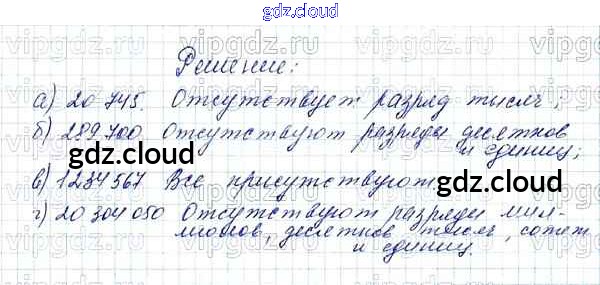 gdz.cloud
Решение:
а) 20 745. Отсутствует разряд тысяч;
б) 289 700 Отсутствуют разряды десятков
и единиц;
в) 1234567 Все присутствуют
г) 20 304 050 Отсутствуют разряды мил-
лионов, десятков тысяч, сотен
и единиц.
gdz.cloud
gdz.cloud